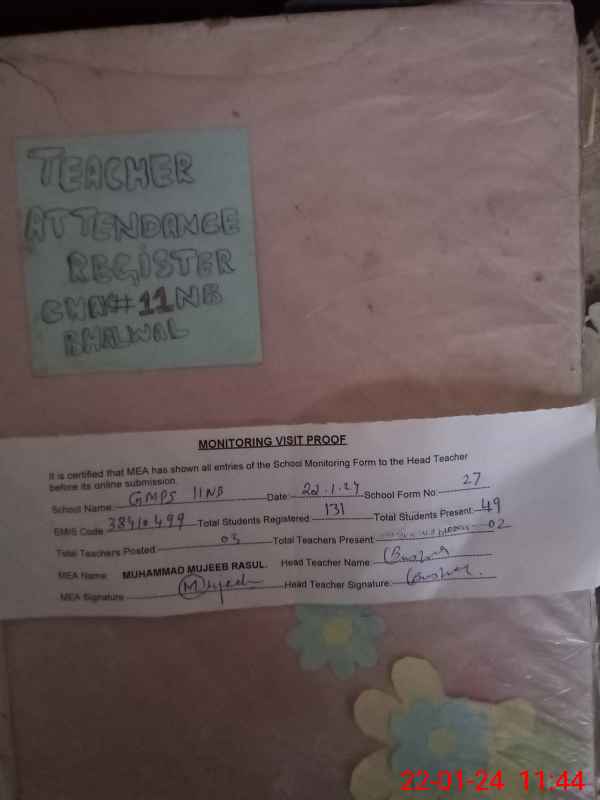 TEACHER
ATTENDANCE
REGISTER
CHAK# 11NB
BHALWAL
MONITORING VISIT PROOF
It is certified that MEA has shown all entries of the School Monitoring Form to the Head Teacher
before its online submission.
School Name: GMPS 11NB Date: 22.1.24 School Form No: 27
EMIS Code 38410499 Total Students Registered 131 Total Students Present: 49
Total Teachers Posted: 03 Total Teachers Present 02
MEA Name: MUHAMMAD MUJEEB RASUL. Head Teacher Name: Bushra
MEA Signature Mujeeb Head Teacher Signature: Bushra.
22-01-24 11:44